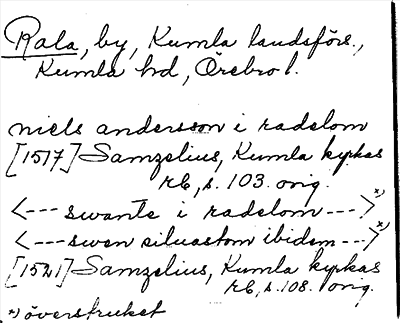 Rala, by, Kumla landsförs.,
Kumla hd, Örebro l.
niels andersson i radelom
[1517] Samzelius, Kumla kyrkas
rb, s. 103. orig.
<--- swante i radelom --->*)
<--- swen siluastom ibidem --->*)
[1521] Samzelius, Kumla kyrkas
rb, s. 108. orig.
*) överstruket